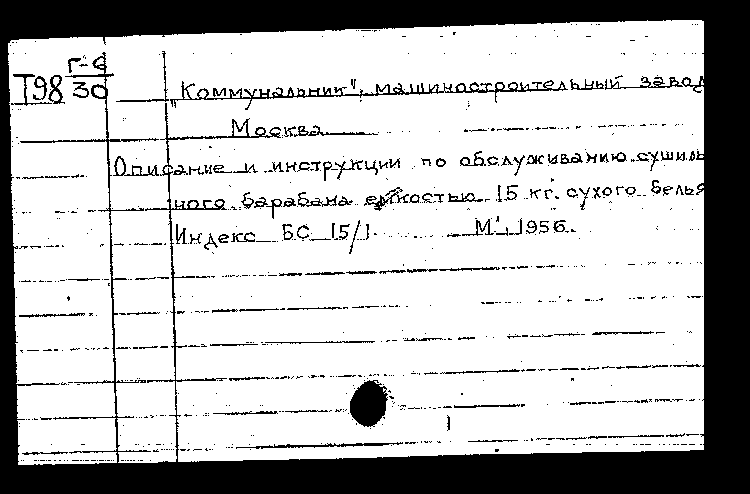 Г-6
Т98 30
"Коммунальник", машиностроительный завод
Москва
Описание и инструкции по обслуживанию сушиль
ного барабана емкостью 15 кг. сухого белья
Индекс БС 15/1. М., 1956.